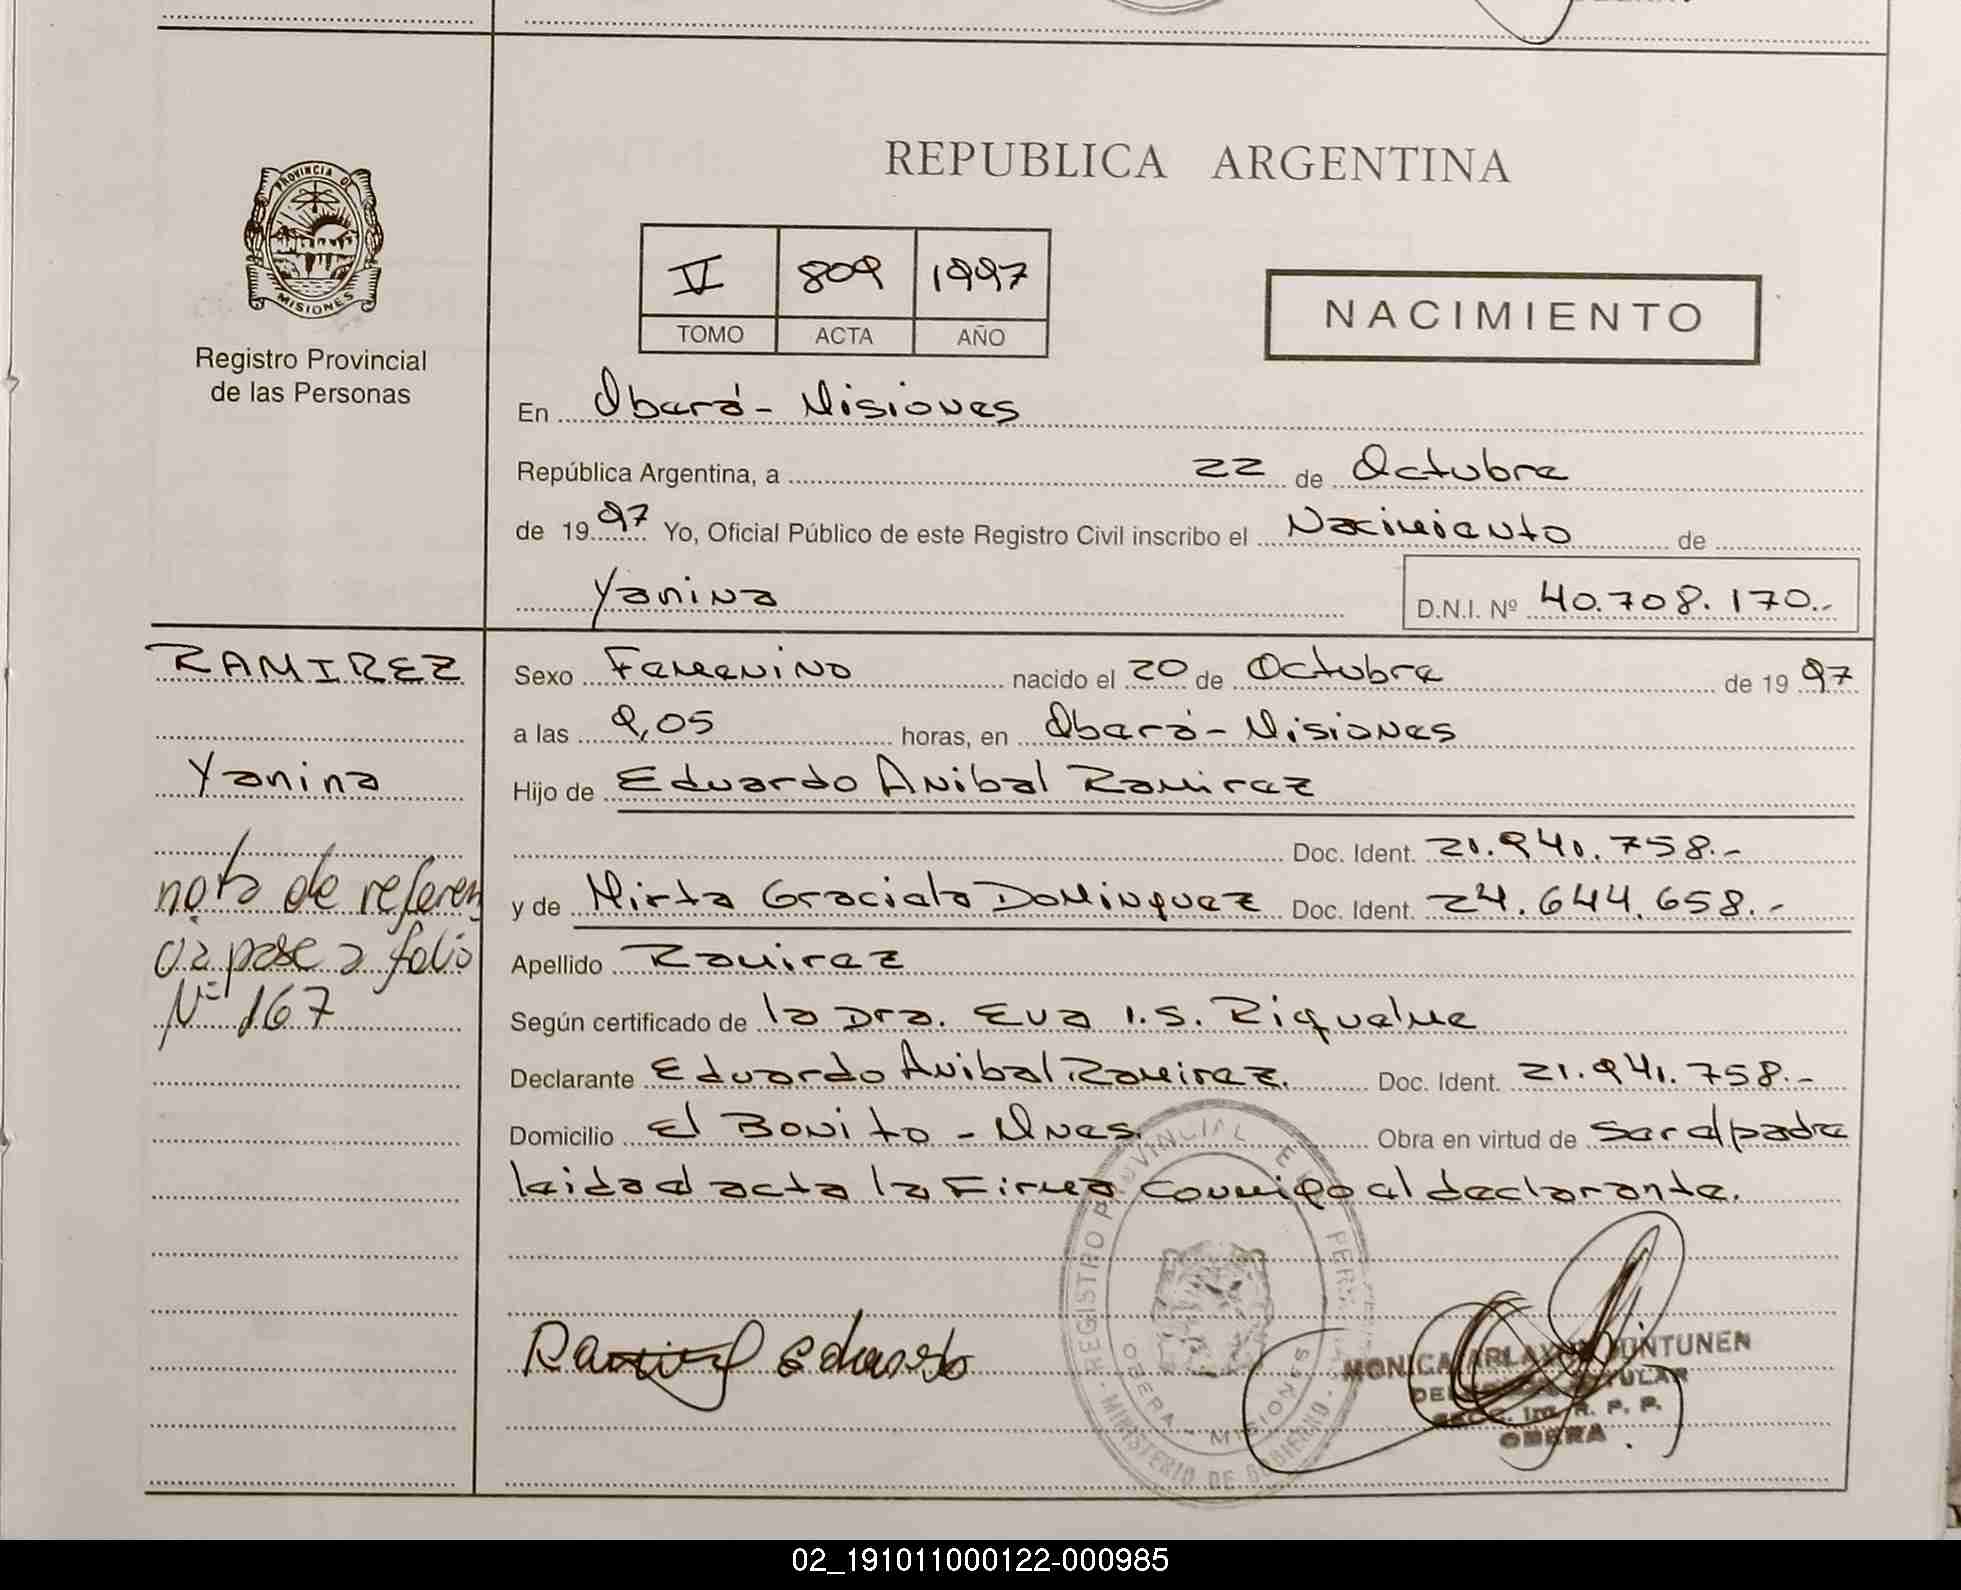 PROVINCIA DE
MISIONES
Registro Provincial
de las Personas
REPUBLICA ARGENTINA
V 809 1997
TOMO ACTA AÑO
NACIMIENTO
En Oberá - Misiones
República Argentina, a 22 de Octubre
de 1997 Yo, Oficial Público de este Registro Civil inscribo el Nacimiento de
Yanina D.N.I. Nº 40.708.170.-
RAMIREZ
Yanina
nota de referen
cia pase a folio
Nº 167
Sexo Femenino nacido el 20 de Octubre de 1997
a las 9,05 horas, en Oberá - Misiones
Hijo de Eduardo Anibal Ramirez
Doc. Ident. 21.941.758.-
y de Mirta Graciela Dominguez Doc. Ident. 24.644.658.-
Apellido Ramirez
Según certificado de la Dra. Eva I.S. Riquelme
Declarante Eduardo Anibal Ramirez. Doc. Ident. 21.941.758.-
Domicilio El Bonito - Mnes. Obra en virtud de ser el padre
leida el acta la Firma conmigo el declarante.
Ramirez Eduardo
REGISTRO PROVINCIAL DE
MINISTERIO DE GOBIERNO
OBERA - MISIONES
MONICA
TITULAR
R. P. P.
OBERA
02_191011000122-000985